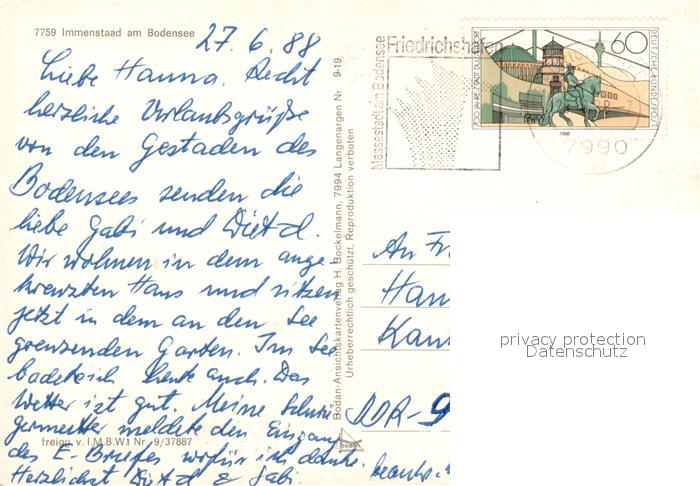 7759 Immenstaad am Bodensee
27.6.88
Liebe Hanna. Recht
herzliche Urlaubsgrüße
von den Gestaden des
Bodensees senden die
liebe Gabi und Diet d.
Wir wohnen in dem ange-
kreuzten Haus und sitzen
jetzt in dem an den See
grenzenden Garten. Im See
badete ich heute auch. Das
Wetter ist gut. Meine Schwie
germutter meldete den Eingang
des E-Briefes wofür ich danke.
Herzlichst Diet d & Gabi
freigg. v. I.M.B.W. Nr. 9/37887
Bodan-Ansichtskartenverlag H. Bockelmann, 7994 Langenargen Nr. 9-19
Urheberrechtlich geschützt. Reproduktion verboten
bodan
Messestadt am Bodensee
Friedrichshafen
60
DEUTSCHE BUNDESPOST
700 JAHRE STADT DÜSSELDORF
1988
7990
An Fr
Han
Kan
DDR-9
beantw.
privacy protection
Datenschutz